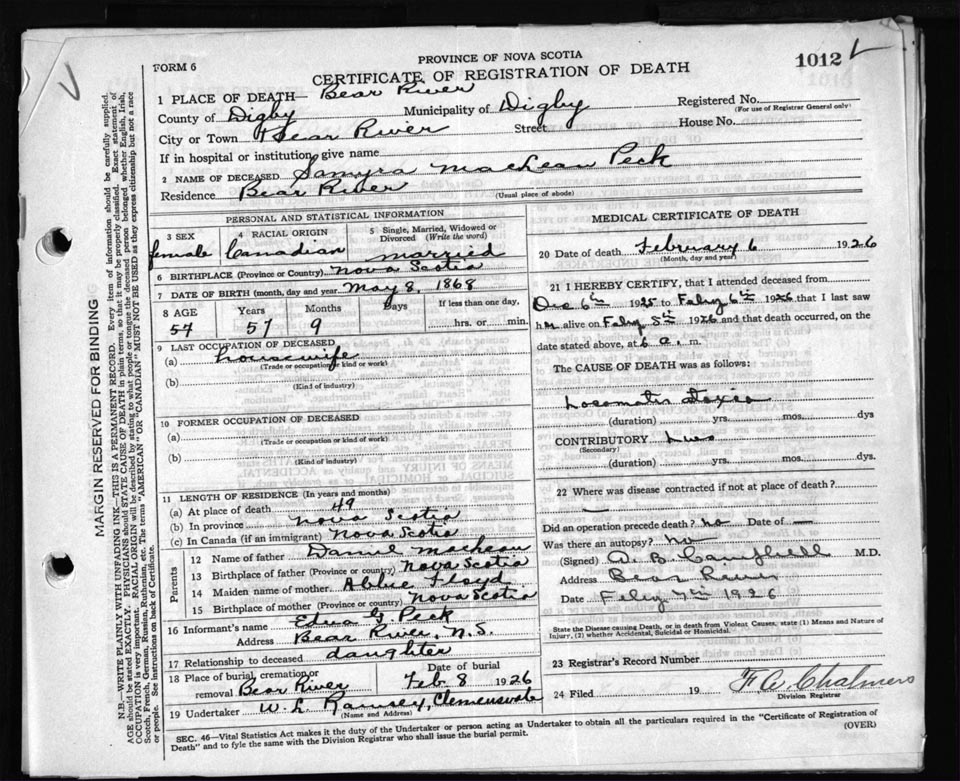 PROVINCE OF NOVA SCOTIA
FORM 6
1012
CERTIFICATE OF REGISTRATION OF DEATH
1 PLACE OF DEATH— Bear River
County of Digby Municipality of Digby Registered No.
(For use of Registrar General only)
City or Town Bear River Street House No.
If in hospital or institution, give name
2 NAME OF DECEASED Samyra MacLean Peck
Residence Bear River (Usual place of abode)
PERSONAL AND STATISTICAL INFORMATION
3 SEX female
4 RACIAL ORIGIN Canadian
5 Single, Married, Widowed or Divorced (Write the word) married
6 BIRTHPLACE (Province or Country) Nova Scotia
7 DATE OF BIRTH (month, day and year) May 8, 1868
8 AGE Years Months Days If less than one day,
57 57 9 hrs. or min.
9 LAST OCCUPATION OF DECEASED
(a) housewife
(Trade or occupation or kind of work)
(b)
(Kind of industry)
10 FORMER OCCUPATION OF DECEASED
(a)
(Trade or occupation or kind of work)
(b)
(Kind of industry)
11 LENGTH OF RESIDENCE (In years and months)
(a) At place of death 49
(b) In province Nova Scotia
(c) In Canada (if an immigrant) Nova Scotia
Parents
12 Name of father Daniel MacLean
13 Birthplace of father (Province or country) Nova Scotia
14 Maiden name of mother Abbie Floyd
15 Birthplace of mother (Province or country) Nova Scotia
16 Informant's name Edna G. Peck
Address Bear River, N.S.
17 Relationship to deceased daughter
18 Place of burial, cremation or removal Bear River Date of burial Feb. 8 1926
19 Undertaker W. L. Ramsey, Clementsvale
(Name and Address)
MEDICAL CERTIFICATE OF DEATH
20 Date of death February 6 1926
(Month, day and year)
21 I HEREBY CERTIFY, that I attended deceased from
Dec 6th 1925 to Feby 6th 1926 that I last saw
h alive on Feby 5th 1926 and that death occurred, on the
date stated above, at 6 a. m.
The CAUSE OF DEATH was as follows:
Locomotor Ataxia
(duration) yrs. mos. dys
CONTRIBUTORY Lues
(Secondary)
(duration) yrs. mos. dys
22 Where was disease contracted if not at place of death?
—
Did an operation precede death? no Date of —
Was there an autopsy? no
(Signed) A. B. Campbell M.D.
Address Bear River
Date Feby 7th 1926
State the Disease causing Death, or in death from Violent Causes, state (1) Means and Nature of Injury, (2) whether Accidental, Suicidal or Homicidal.
23 Registrar's Record Number
24 Filed 19 F. W. Chalmers
Division Registrar
SEC. 46—Vital Statistics Act makes it the duty of the Undertaker or person acting as Undertaker to obtain all the particulars required in the "Certificate of Registration of
Death" and to fyle the same with the Division Registrar who shall issue the burial permit. (OVER)
MARGIN RESERVED FOR BINDING
N.B.—WRITE PLAINLY WITH UNFADING INK—THIS IS A PERMANENT RECORD. Every item of information should be carefully supplied.
AGE should be stated EXACTLY. PHYSICIANS should STATE CAUSE OF DEATH in plain terms, so that it may be properly classified. Exact statement of
OCCUPATION is very important. RACIAL ORIGIN will be described by stating to what people or tongue the deceased person belonged whether English, Irish,
Scotch, French, German, Russian, Ruthenian, etc. The terms "AMERICAN" OR "CANADIAN" MUST NOT BE USED as they express citizenship but not a race
or people. See instructions on back of Certificate.